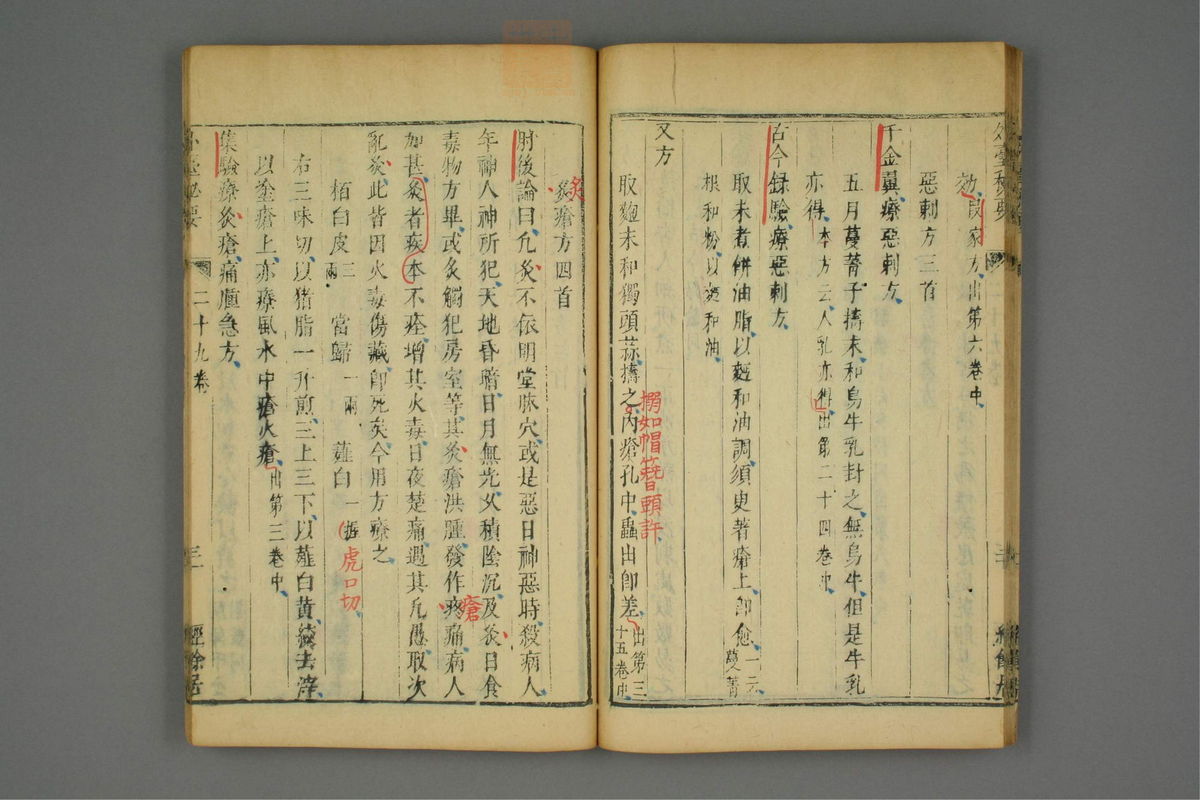 外臺秘要
效、崔家方、出第六卷中、
惡刺方三首
千金翼、療惡刺方、
五月蔓菁子擣末、和烏牛乳封之、無烏牛、但是牛乳
亦得、本方云、人乳亦得、出第二十四卷中、
古今録驗、療惡刺方、
取末煮餅油脂以麪和油調、須臾著瘡上、即愈、一云、蔓菁
根和粉以 和油、
又方
取麴末和獨頭蒜擣之、內瘡孔中、蟲出即差、出第三十五卷中、
搦如帽簪頭許
灸瘡方四首
灸
肘後論曰、凡灸不依明堂脉穴、或是惡日神惡時殺病人、
年神人神所犯、天地昏暗、日月無光、久積陰沉、及灸日食
毒物方畢、或灸觸犯房室等、其灸瘡洪腫、發作疼痛、病人
瘡
加甚、灸者疾本不痊、增其火毒日夜楚痛、遇其凡愚、取次
亂灸、此皆因火毒傷藏、即死矣今用方療之、
栢白皮三兩 當歸一兩 薤白一握
虎口切、
右三味切、以猪脂一升煎、三上三下、以薤白黃、綾去滓、
以塗瘡上、亦療風水中瘡火瘡、出第三卷中、
集驗療灸瘡、痛腫急方、
外臺秘要 二十九卷 三 經餘居